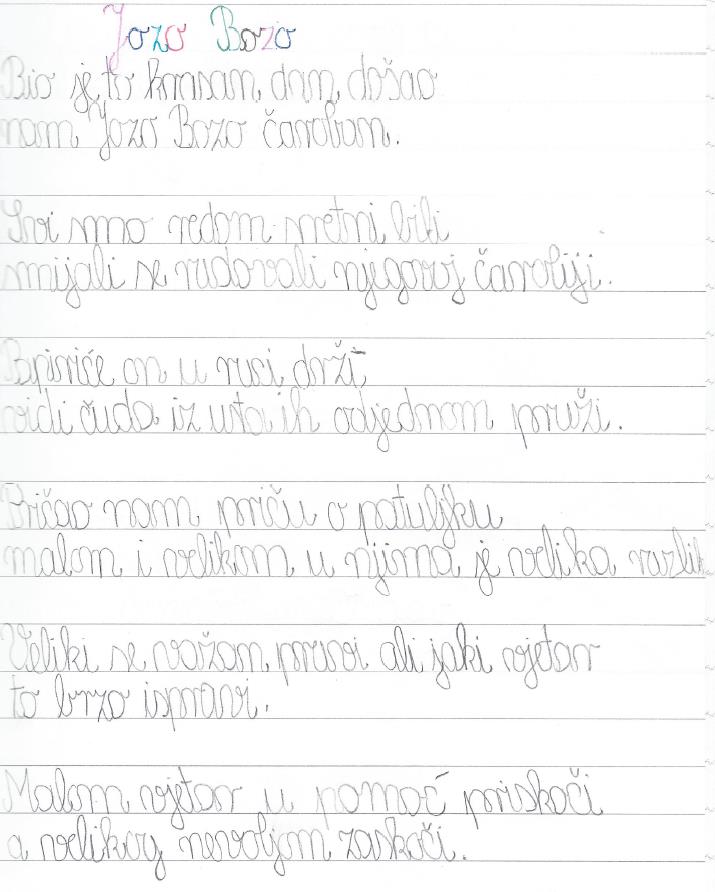 Jozo Bozo
Bio je to krasan dan, došao
nam Jozo Bozo čaroban.
Svi smo redom sretni bili
smijali se radovali njegovoj čaroliji.
Papiriće on u ruci drži,
vidi čuda iz usta ih odjednom pruži.
Pričao nam priču o patuljku
malom i velikom u njima je velika razlik
Veliki se važan pravi ali jaki vjetar
to brzo ispravi.
Malom vjetar u pomoć priskoči
a velikog nevoljom zaskoči.